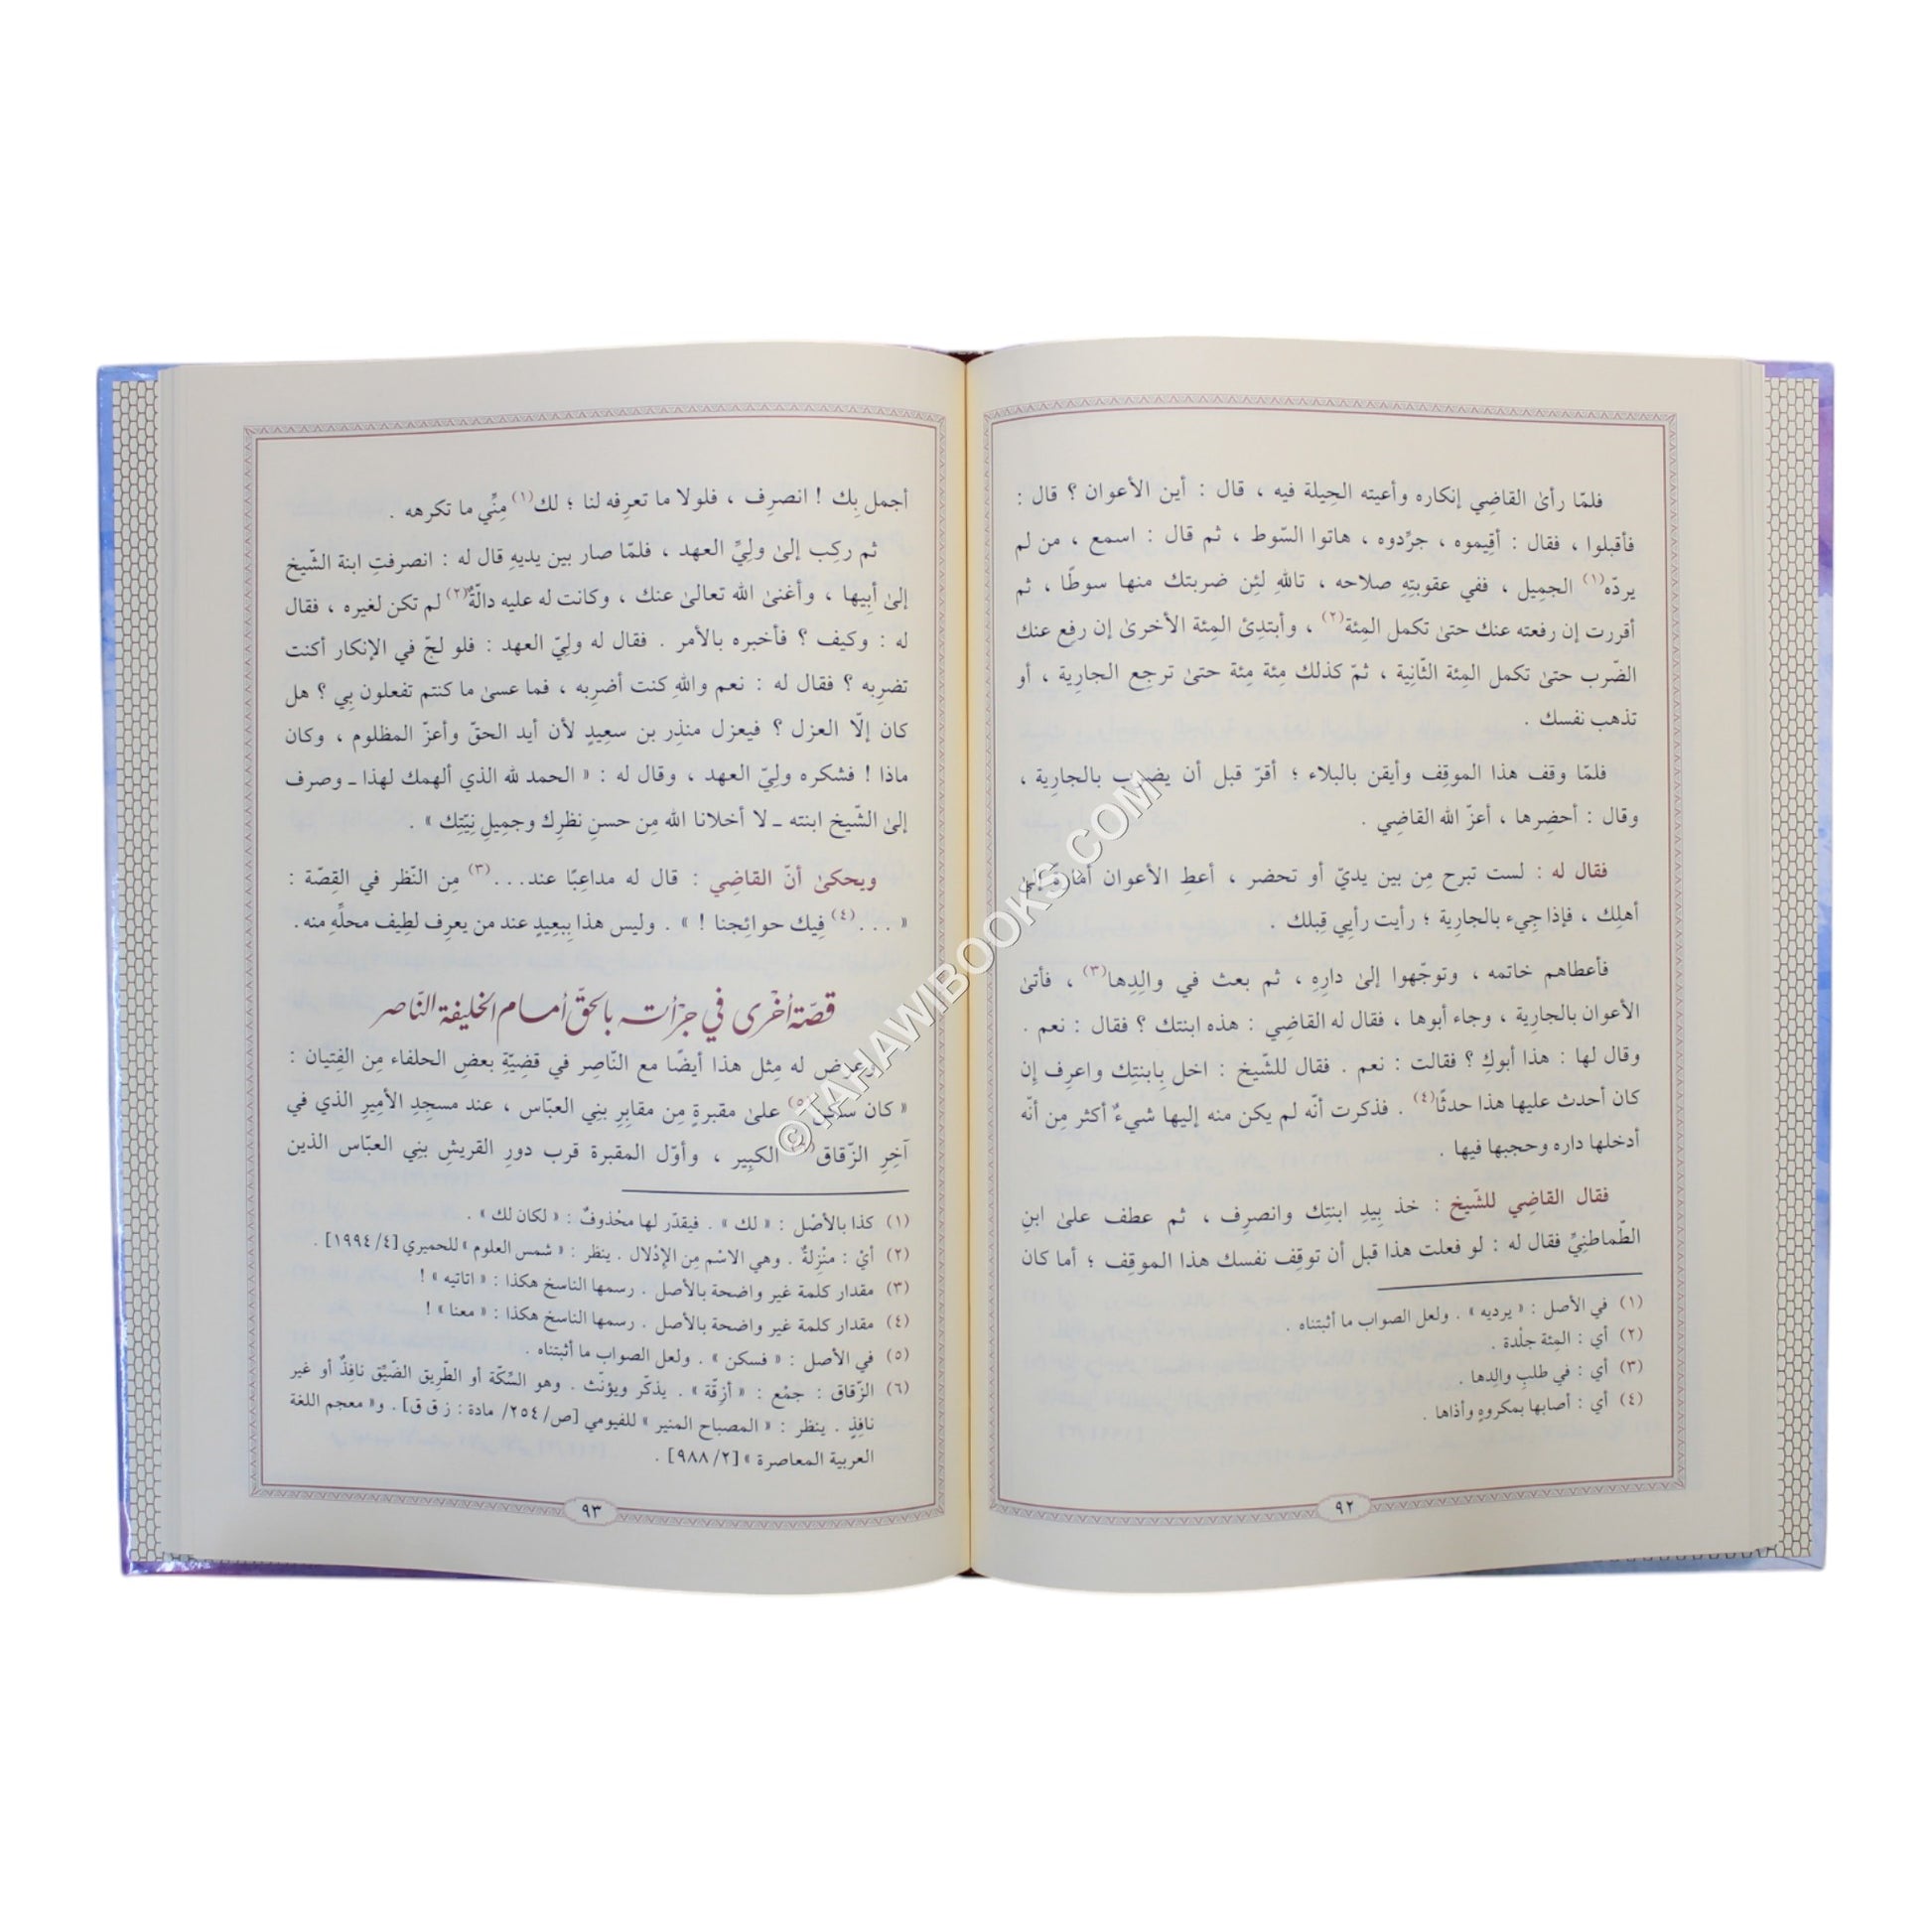 فلمّا رأىٰ القاضِي إنكاره وأعيته الحِيلة فيه ، قال : أين الأعوان ؟ قال :
فأقبلوا ، فقال : أقِيموه ، جرِّدوه ، هاتوا السّوط ، ثم قال : اسمع ، من لم
يردّه(١) الجمِيل ، ففي عقوبتِهِ صلاحه ، تاللهِ لئِن ضربتك منها سوطًا ، ثم
أقررت إن رفعته عنك حتىٰ تكمل المِئة(٢) ، وأبتدِئ المِئة الأخرىٰ إن رفع عنك
الضّرب حتىٰ تكمل المِئة الثّانِية ، ثمّ كذلك مِئة مِئة حتىٰ ترجِع الجارِية ، أو
تذهب نفسك .
فلمّا وقف هذا الموقِف وأيقن بالبلاء ؛ أقرّ قبل أن يضرب بالجارِية ،
وقال : أحضِرها ، أعزّ الله القاضِي .
فقال له : لست تبرح مِن بين يديّ أو تحضر ، أعطِ الأعوان أمارة إلىٰ
أهلِك ، فإذا جِيء بالجارِية ؛ رأيت رأيِي قِبلك .
فأعطاهم خاتمه ، وتوجّهوا إلىٰ دارِهِ ، ثم بعث في والِدِها(٣) ، فأتىٰ
الأعوان بالجارِية ، وجاء أبوها ، فقال له القاضِي : هذه ابنتك ؟ فقال : نعم .
وقال لها : هذا أبوكِ ؟ فقالت : نعم . فقال للشّيخ : اخل بِابنتِك واعرِف إن
كان أحدث عليها هذا حدثًا(٤) . فذكرت أنّه لم يكن منه إليها شيءٌ أكثر مِن أنّه
أدخلها داره وحجبها فيها .
فقال القاضِي للشّيخ : خذ بِيدِ ابنتِك وانصرِف ، ثم عطف علىٰ ابنِ
الطّماطنِيِّ فقال له : لو فعلت هذا قبل أن توقِف نفسك هذا الموقِف ؛ أما كان
(١) في الأصل : « يرديه » . ولعل الصواب ما أثبتناه .
(٢) أي : المِئة جلْدة .
(٣) أي : في طلبِ والِدها .
(٤) أي : أصابها بمكروهٍ وأذاها .
٩٢
أجمل بِك ! انصرِف ، فلولا ما تعرِفه لنا ؛ لك(١) مِنِّي ما تكرهه .
ثم ركِب إلىٰ ولِيِّ العهد ، فلمّا صار بين يديهِ قال له : انصرفتِ ابنة الشّيخ
إلىٰ أبِيها ، وأغنىٰ الله تعالىٰ عنك ، وكانت له عليه دالّةٌ(٢) لم تكن لغيره ، فقال
له : وكيف ؟ فأخبره بالأمر . فقال له ولِيّ العهد : فلو لجّ في الإنكار أكنت
تضرِبه ؟ فقال له : نعم واللهِ كنت أضرِبه ، فما عسىٰ ما كنتم تفعلون بِي ؟ هل
كان إلّا العزل ؟ فيعزل منذِر بن سعِيدٍ لأن أيد الحقّ وأعزّ المظلوم ، وكان
ماذا ! فشكره ولِيّ العهد ، وقال له : « الحمد لله الذي ألهمك لهذا ـ وصرف
إلىٰ الشّيخ ابنته ـ لا أخلانا الله مِن حسنِ نظرِك وجمِيلِ نِيّتِك » .
ويحكىٰ أنّ القاضِي : قال له مداعِبًا عند...(٣) مِن النّظر في القِصّة :
« ...(٤) فِيك حوائِجنا ! » . وليس هذا بِبعِيدٍ عند من يعرِف لطِيف محلِّه منه .
قصّة أخرى في جرأته بالحقّ أمام الخليفة النّاصر
وعرض له مِثل هذا أيضًا مع النّاصِر في قضِيّةِ بعضِ الحلفاء مِن الفِتيان :
« كان علىٰ مقبرةٍ مِن مقابِرِ بنِي العبّاس ، عند مسجِدِ الأمِيرِ الذي في
آخِرِ الزّقاق الكبِير ، وأوّل المقبرة قرب دورِ القريشِ بنِي العبّاس الذين
(١) كذا بالأصْل : « لك » . فيقدّر لها محْذوفٌ : « لكان لك » .
(٢) أيْ : منْزِلةٌ . وهي الاسْم مِن الإدْلال . ينظر : « شمس العلوم » للحميري [٤/ ١٩٩٤] .
(٣) مقدار كلمة غير واضحة بالأصل . رسمها الناسخ هكذا : « اتاتيه » !
(٤) مقدار كلمة غير واضحة بالأصل . رسمها الناسخ هكذا : « معنا » !
(٥) في الأصل : « فسكن » . ولعل الصواب ما أثبتناه .
(٦) الزّقاق : جمْع : « أزِقّة » . يذكّر ويؤنّث . وهو السِّكّة أو الطّرِيق الضّيِّق نافِذٌ أو غير
نافِذٍ . ينظر : « المصباح المنير » للفيومي [ص/ ٢٥٤/ مادة : ز ق ق] . و« معجم اللغة
العربية المعاصرة » [٢/ ٩٨٨] .
٩٣
©TAHAWIBOOKS.COM